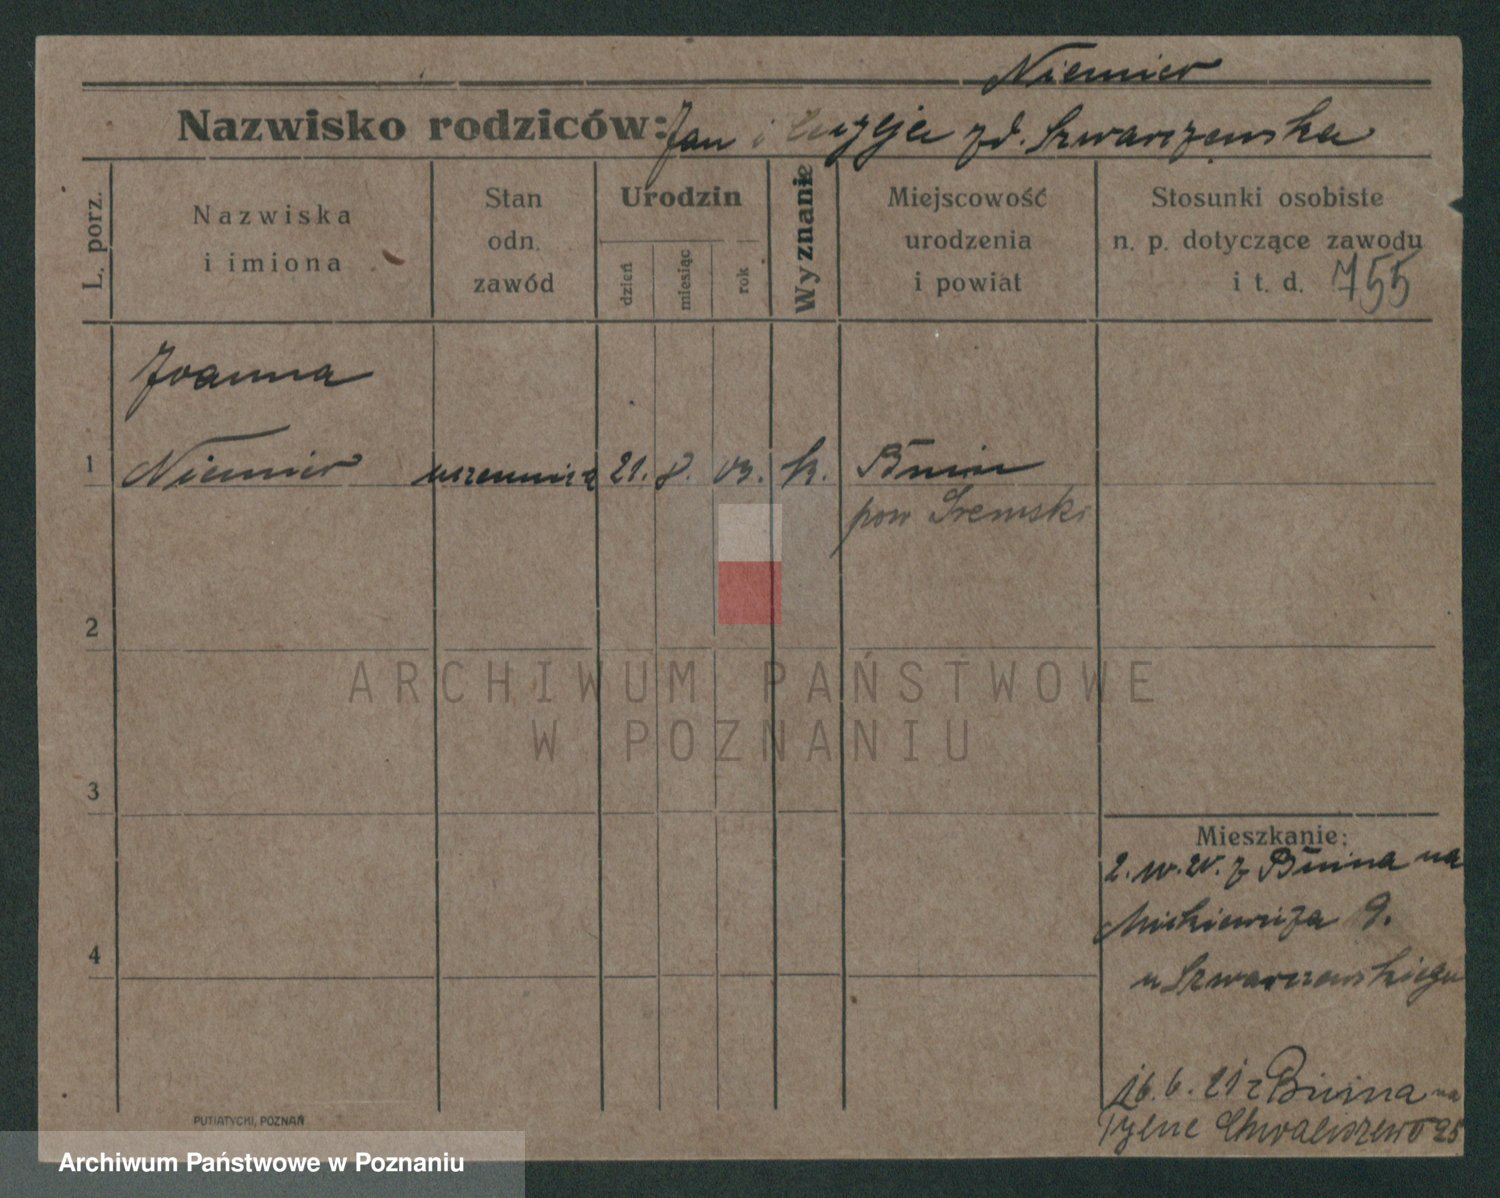 Niemier
Nazwisko rodziców: Jan i Łucyja zd. Szwarczewska
L. porz.
Nazwiska
i imiona
Stan
odn.
zawód
Urodzin
dzień
miesiąc
rok
Wyznanie
Miejscowość
urodzenia
i powiat
Stosunki osobiste
n. p. dotyczące zawodu
i t. d. 755
Joanna
1 Niemier uczennica 21. 8. 03. k. Bnin
pow Śremski
2
ARCHIWUM PAŃSTWOWE
W POZNANIU
3
Mieszkanie:
z Bnina na
Mickiewicza 9.
u Szwarczewskiego
4
16.6.21 z Bnina na
Tylne Chwaliszewo 25
PUTIATYCKI, POZNAŃ
Archiwum Państwowe w Poznaniu